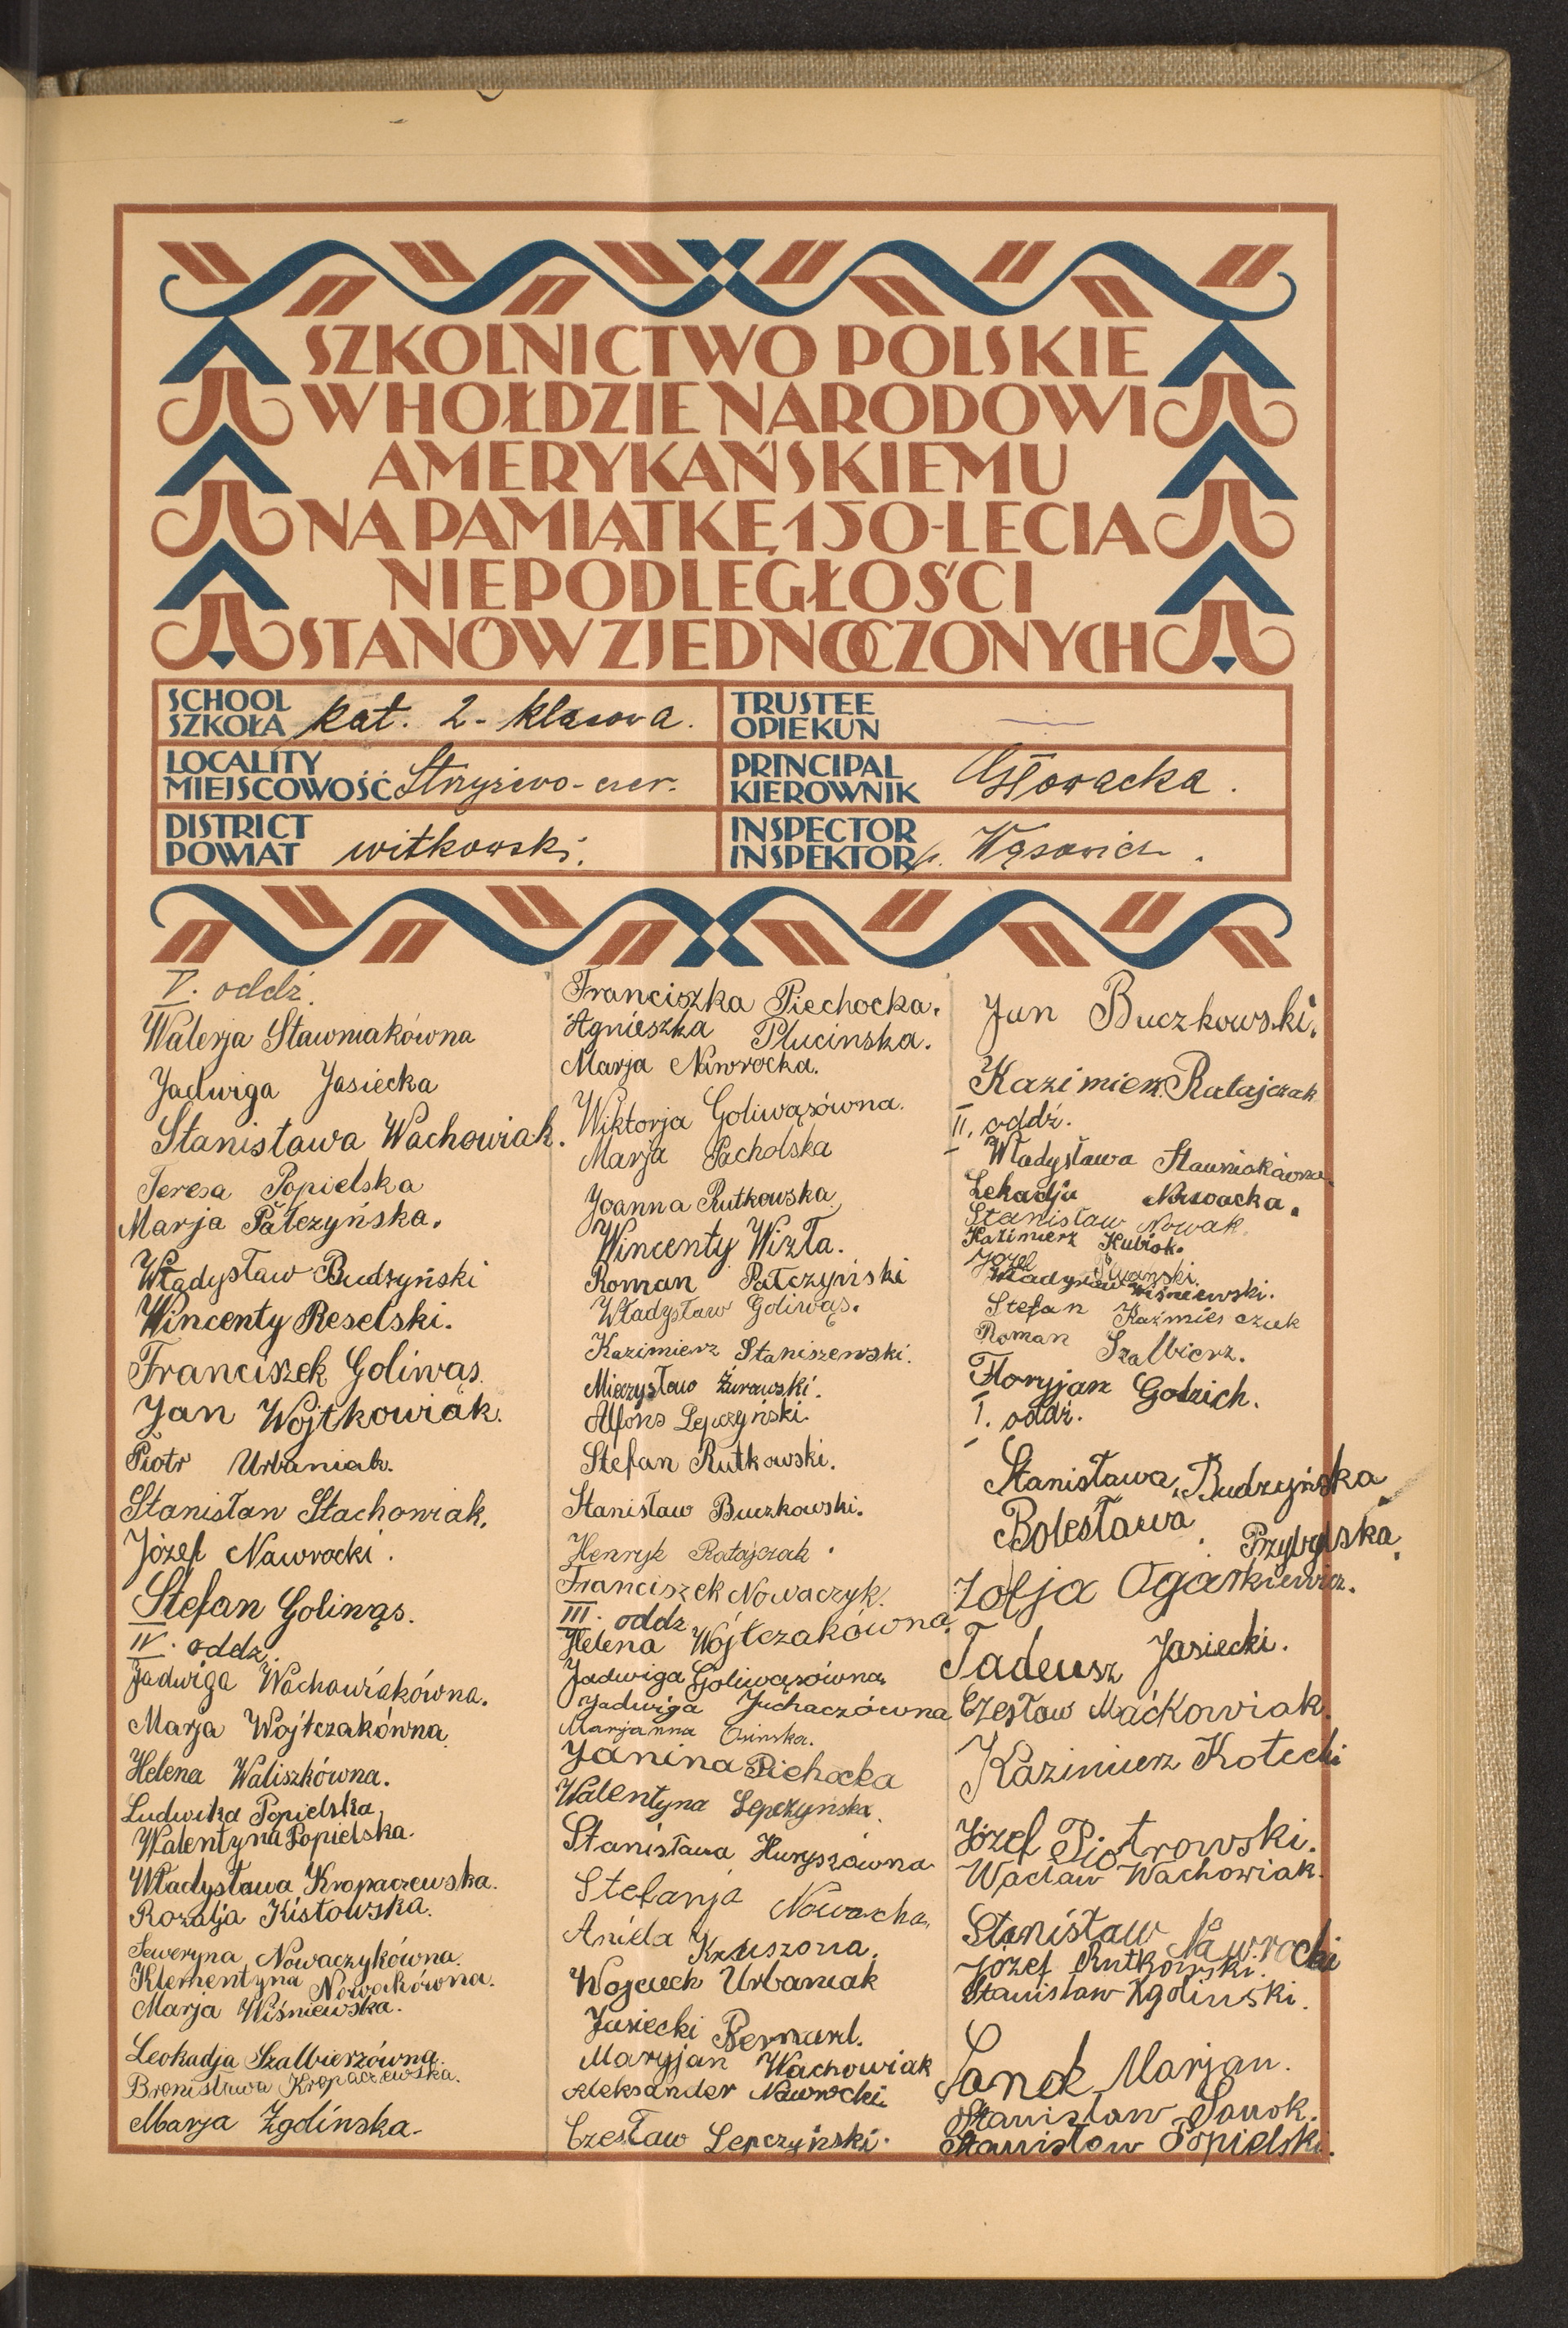 SZKOLNICTWO POLSKIE
W HOŁDZIE NARODOWI
AMERYKAŃSKIEMU
NA PAMIĄTKĘ 150-LECIA
NIEPODLEGŁOŚCI
STANÓW ZJEDNOCZONYCH
SCHOOL
SZKOŁA kat. 2-klasowa.
TRUSTEE
OPIEKUN
LOCALITY
MIEJSCOWOŚĆ Strzyżewo-czer.
PRINCIPAL
KIEROWNIK Głowacka.
DISTRICT
POWIAT witkowski.
INSPECTOR
INSPEKTOR p. Wąsowicz.
V. oddz.
Walerja Stawniakówna
Jadwiga Jasiecka
Stanisława Wachowiak.
Teresa Popielska
Marja Pałczyńska.
Władysław Budzyński
Wincenty Reselski.
Franciszek Goliwąs.
Jan Wojtkowiak.
Piotr Urbaniak.
Stanisław Stachowiak.
Józef Nawrocki.
Stefan Goliwąs.
IV. oddz.
Jadwiga Wachowiakówna.
Marja Wojtczakówna.
Helena Waliszkówna.
Ludwika Popielska,
Walentyna Popielska.
Władysława Kropaczewska.
Rozalja Kistowska.
Seweryna Nowaczykówna.
Klementyna Nowakówna.
Marja Wiśniewska.
Leokadja Szalbierzówna.
Bronisława Kropaczewska.
Marja Zgolińska.
Franciszka Piechocka.
Agnieszka Plucinska.
Marja Nawrocka.
Wiktorja Goliwąsówna.
Marja Pacholska
Joanna Rutkowska
Wincenty Wizła.
Roman Pałczyński
Władysław Goliwąs.
Kazimierz Staniszewski.
Mieczysław Żurawski.
Alfons Lepczyński.
Stefan Rutkowski.
Stanisław Buczkowski.
Henryk Ratajczak.
Franciszek Nowaczyk.
III. oddz
Helena Wójtczakówna.
Jadwiga Goliwąsówna,
Jadwiga Juchaczówna
Marjanna Osinska.
Janina Piehocka
Walentyna Lepczynska.
Stanisława Huryszówna
Stefanja Nowacka,
Aniela Kruszona.
Wojciech Urbaniak
Jasiecki Bernard.
Maryjan Wachowiak
Aleksander Nawrocki.
Czesław Lepczyński.
Jan Buczkowski.
Kazimierz Ratajczak
II. oddz.
Władysława Stawniakówna
Lekadja Nawoacka.
Stanisław Nowak.
Kazimierz Kubiak.
Józef Iwański.
Władysław Wiśniewski.
Stefan Kaźmierczak
Roman Szalbierz.
Floryjan Godzich.
I. oddz.
Stanisława Budzyńska
Bolesława Przybylska.
Zofja Ogarkiewicz.
Tadeusz Jasiecki.
Czesław Maćkowiak.
Kazimierz Kotecki
Józef Piotrowski.
Wacław Wachowiak.
Stanisław Nawrocki
Józef Rutkowski.
Stanisław Zgoliński.
Sanok Marjan.
Stanisław Sanok.
Stanisław Popielski.